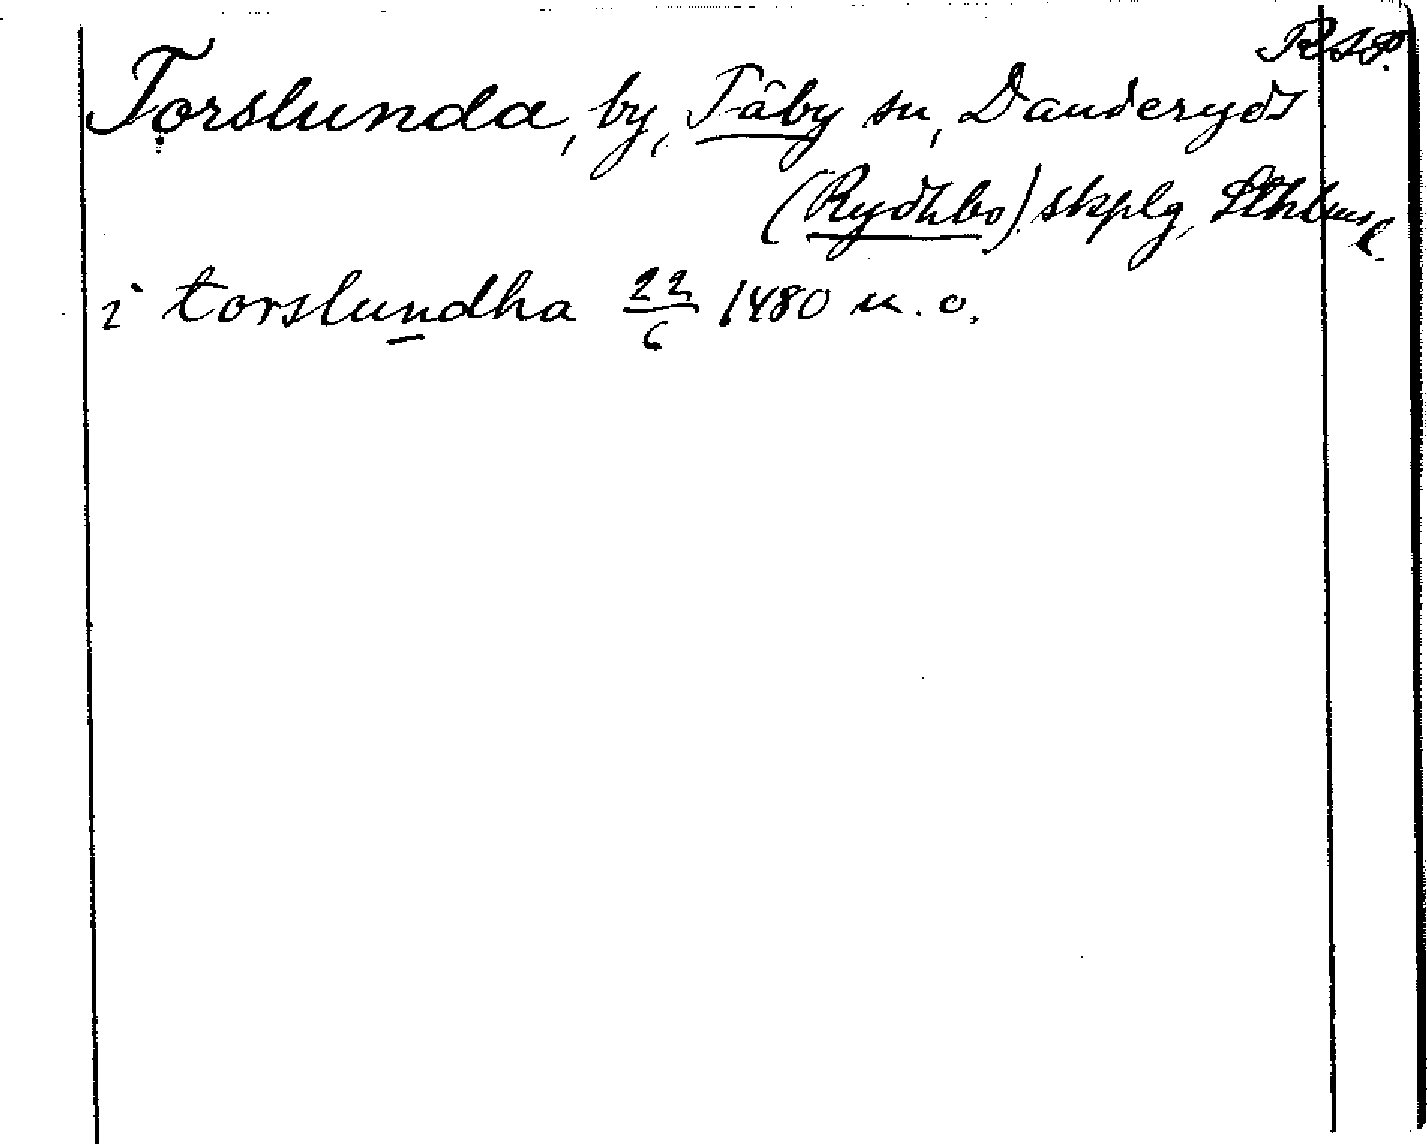 R A P.
Torslunda, by, Täby sn, Danderyds
(Rydhbo) skplg, Sthlms l.
i torslundha 22/6 1480 u. o.